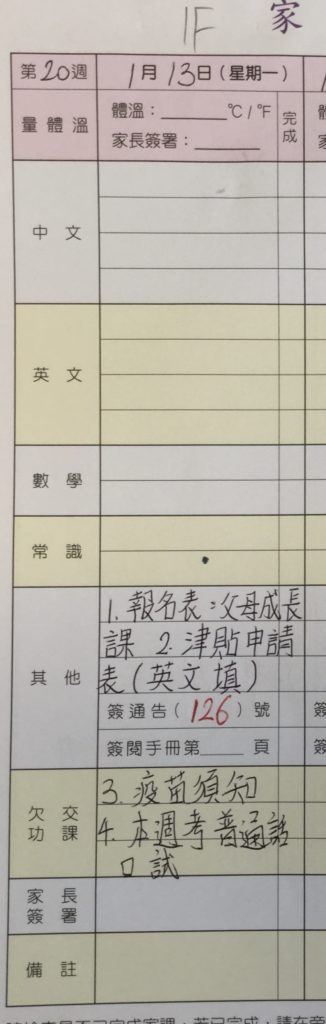 1F 家
第20週 1月13日(星期一)
量體溫 體溫:______℃/℉ 完成
家長簽署:______
中文
英文
數學
常識
其他 1. 報名表:父母成長
課 2. 津貼申請
表(英文填)
簽通告(126)號
簽閱手冊第____頁
欠交功課 3. 疫苗須知
4. 本週考普通話
口試
家長簽署
備註